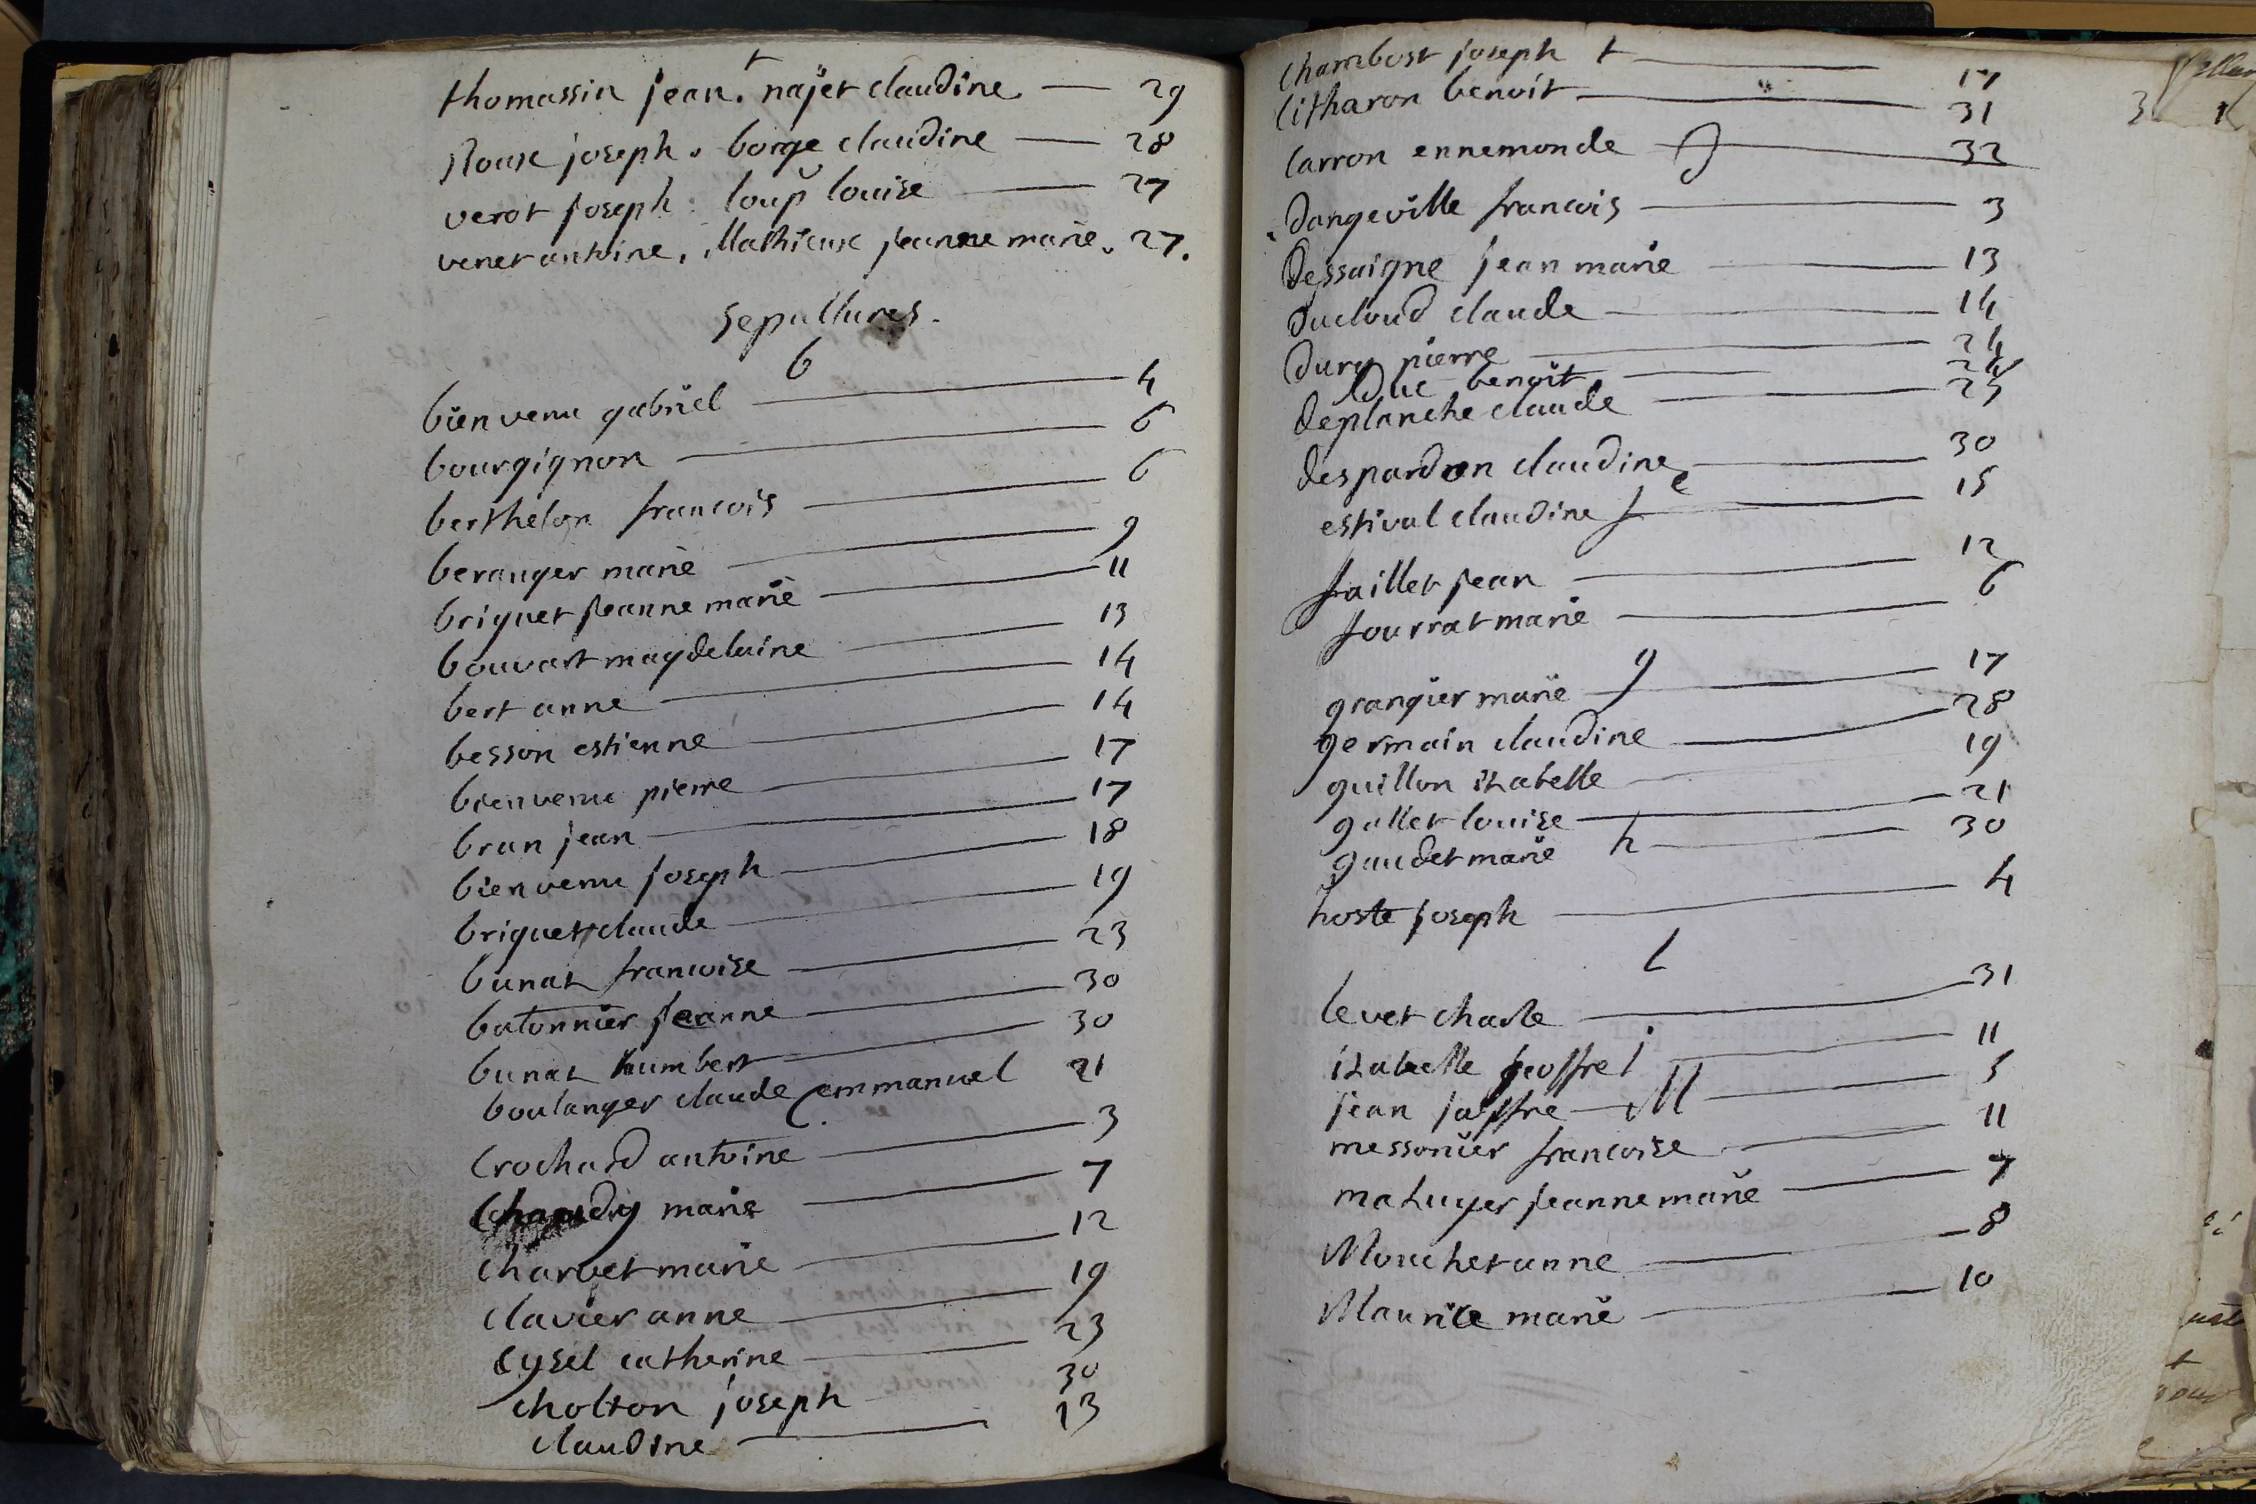 t
thomassin jean. najet claudine — 29
Roux joseph. borge claudine — 28
verot joseph. loup louise — 27
venet antoine. Mathieux jeanne marie. 27.
sepultures.
b
bienvenu gabriel — 4
bourgignon — 6
berthelon francois — 6
beranger marie — 9
briguet jeanne marie — 11
bouvart magdelaine — 13
bert anne — 14
besson estienne — 14
bienvenu pierre — 17
bran jean — 17
bienvenu joseph — 18
briguet claude — 19
bunat francoise — 23
batonnier jeanne — 30
bunat humbert — 30
boulanger claude emmanuel 21
C
crochard antoine — 3
chaudy marie — 7
charvet marie — 12
clavier anne — 19
cysel catherine — 23
cholton joseph 30
claudine — 13
chambost joseph t — 17
citharon benoit — 31
carron ennemonde — 32
D
dangeville francois — 3
dessaigne jean marie — 13
ducloud claude — 14
dury pierre — 24
duc benoit — 24
deplanche claude — 25
despardon claudine — 30
e
estival claudine — 15
f
faillet jean — 12
fourrat marie — 6
g
grangier marie — 17
germain claudine — 28
guillon izabelle — 19
gallet louise — 21
gaudet marie — 30
h
hoste joseph — 4
l
levet charle — 31
j
izabelle geoffre — 11
jean jaffre — 5
M
messonier francoise — 11
mazuyer jeanne marie — 7
Mouchet anne — 8
Maurice marie — 10
3